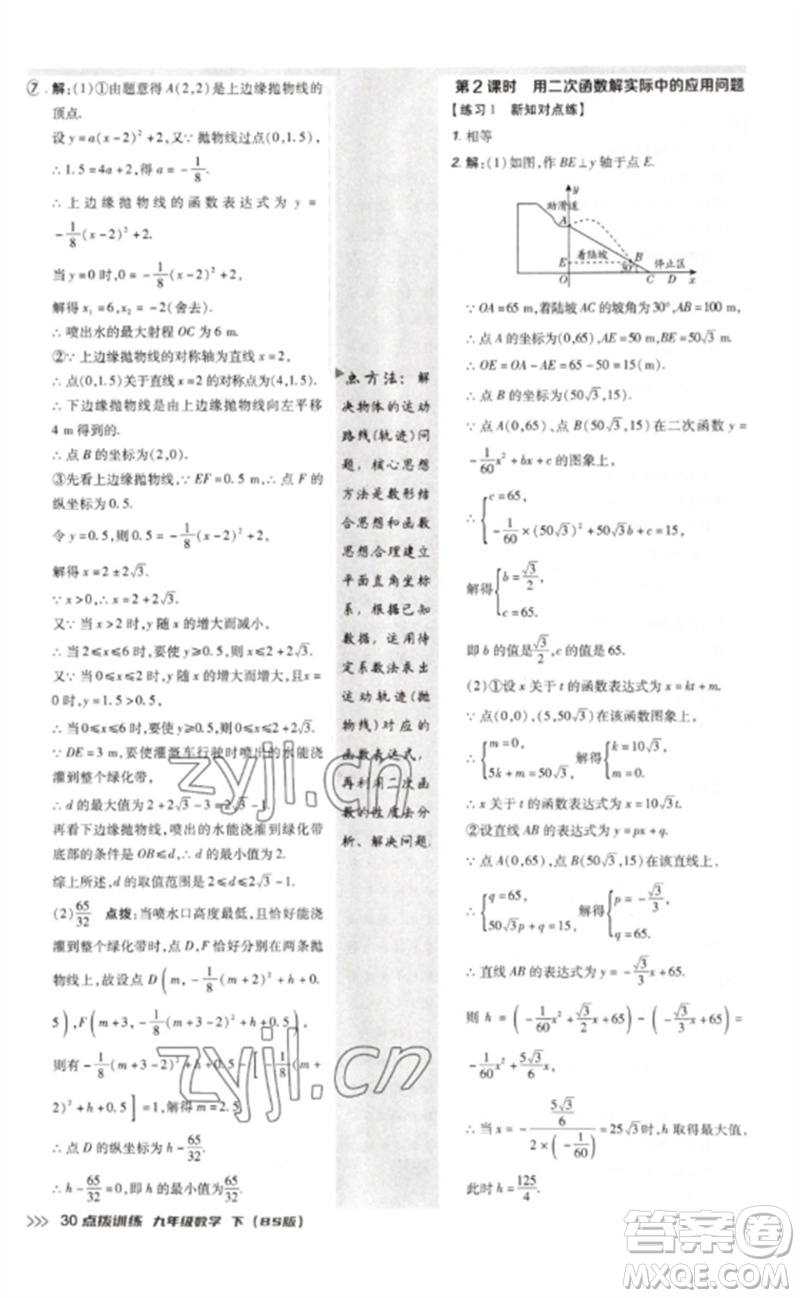 ⑦ 解:(1)①由题意得A(2,2)是上边缘抛物线的
顶点.
设y=a(x-2)²+2.又∵抛物线过点(0,1.5),
∴1.5=4a+2,得a=-1/8.
∴上边缘抛物线的函数表达式为y=
-1/8(x-2)²+2.
当y=0时,0=-1/8(x-2)²+2,
解得x₁=6,x₂=-2(舍去).
∴喷出水的最大射程OC为6 m.
②∵上边缘抛物线的对称轴为直线x=2,
∴点(0,1.5)关于直线x=2的对称点为(4,1.5).
∴下边缘抛物线是由上边缘抛物线向左平移
4 m得到的.
∴点B的坐标为(2,0).
③先看上边缘抛物线,∵EF=0.5,∴点F的
纵坐标为0.5.
令y=0.5,则0.5=-1/8(x-2)²+2,
解得x=2±2√3.
∵x>0,∴x=2+2√3.
又∵当x>2时,y随x的增大而减小,
∴当2≤x≤6时,y≥0.5时,2≤x≤2+2√3.
又∵当0≤x≤2时,y随x的增大而增大,且x=0时,
y=1.5>0.5,
∴当0≤x≤6时,y≥0.5时,0≤x≤2+2√3.
∵DE=3,为使灌溉车行驶时喷出的水能浇
灌到整个绿化带,
∴d的最大值为2+2√3-3=2√3-1.
再看下边缘抛物线,喷出的水能浇灌到绿化带
底部的条件是OB≤d,∴d的最小值为2.
综上所述,d的取值范围是2≤d≤2√3-1.
(2)65/32 点拨:当喷水口高度最低,且恰好能浇
灌到整个绿化带时,点D,F恰好分别在两条抛
物线上,故设点D(m,-1/8(m+2)²+h+0.
5),F(m+3,-1/8(m+3-2)²+h+0.5),
则有-1/8(m+3-2)²+h+0.5-[-1/8(m+
2)²+h+0.5]=1,解得m=2.5.
∴点D的纵坐标为h-65/32.
∴h-65/32=0.∴h的最小值为65/32.
点方法:解
决物体的运动
路线(轨迹)问
题,核心思想
方法是数形结
合思想和函数
思想,合理建立
平面直角坐标
系,根据已知
数据,运用待
定系数法求出
运动轨迹(抛
物线)对应的
函数表达式,
再利用二次函
数的性质去分
析、解决问题.
第2课时 用二次函数解实际中的应用问题
【练习1 新知对点练】
1.相等
2.解:(1)如图,作BE⊥y轴于点E.
y
助滑道
A
E
着陆坡
B
30°
停止区
O
C
D
x
∵OA=65 m,着陆坡AC的坡角为30°,AB=100 m,
∴点A的坐标为(0,65),AE=50 m,BE=50√3 m.
∴OE=OA-AE=65-50=15(m).
∴点B的坐标为(50√3,15).
∵点A(0,65)、点B(50√3,15)在二次函数y=
-1/60x²+bx+c的图象上,
∴{c=65,
-1/60×(50√3)²+50√3b+c=15,
解得{b=√3/2,
c=65.
即b的值是√3/2,c的值是65.
(2)①设x关于t的函数表达式为x=kt+m.
∵点(0,0),(5,50√3)在该函数图象上,
∴{m=0,
5k+m=50√3, 解得{k=10√3,
m=0.
∴x关于t的函数表达式为x=10√3t.
②设直线AB的表达式为y=px+q.
∵点A(0,65)、点B(50√3,15)在该直线上,
∴{q=65,
50√3p+q=15, 解得{p=-√3/3,
q=65.
∴直线AB的表达式为y=-√3/3x+65.
则h=(-1/60x²+√3/2x+65)-(-√3/3x+65)
=-1/60x²+5√3/6x.
∴当x=-(5√3/6)/(2×(-1/60))=25√3时,h取得最大值.
此时h=125/4.
>>> 30 点拨训练 九年级数学 下(BS版)
zyjl.cn
zyjl.cn
作业精灵
MMKK.COM